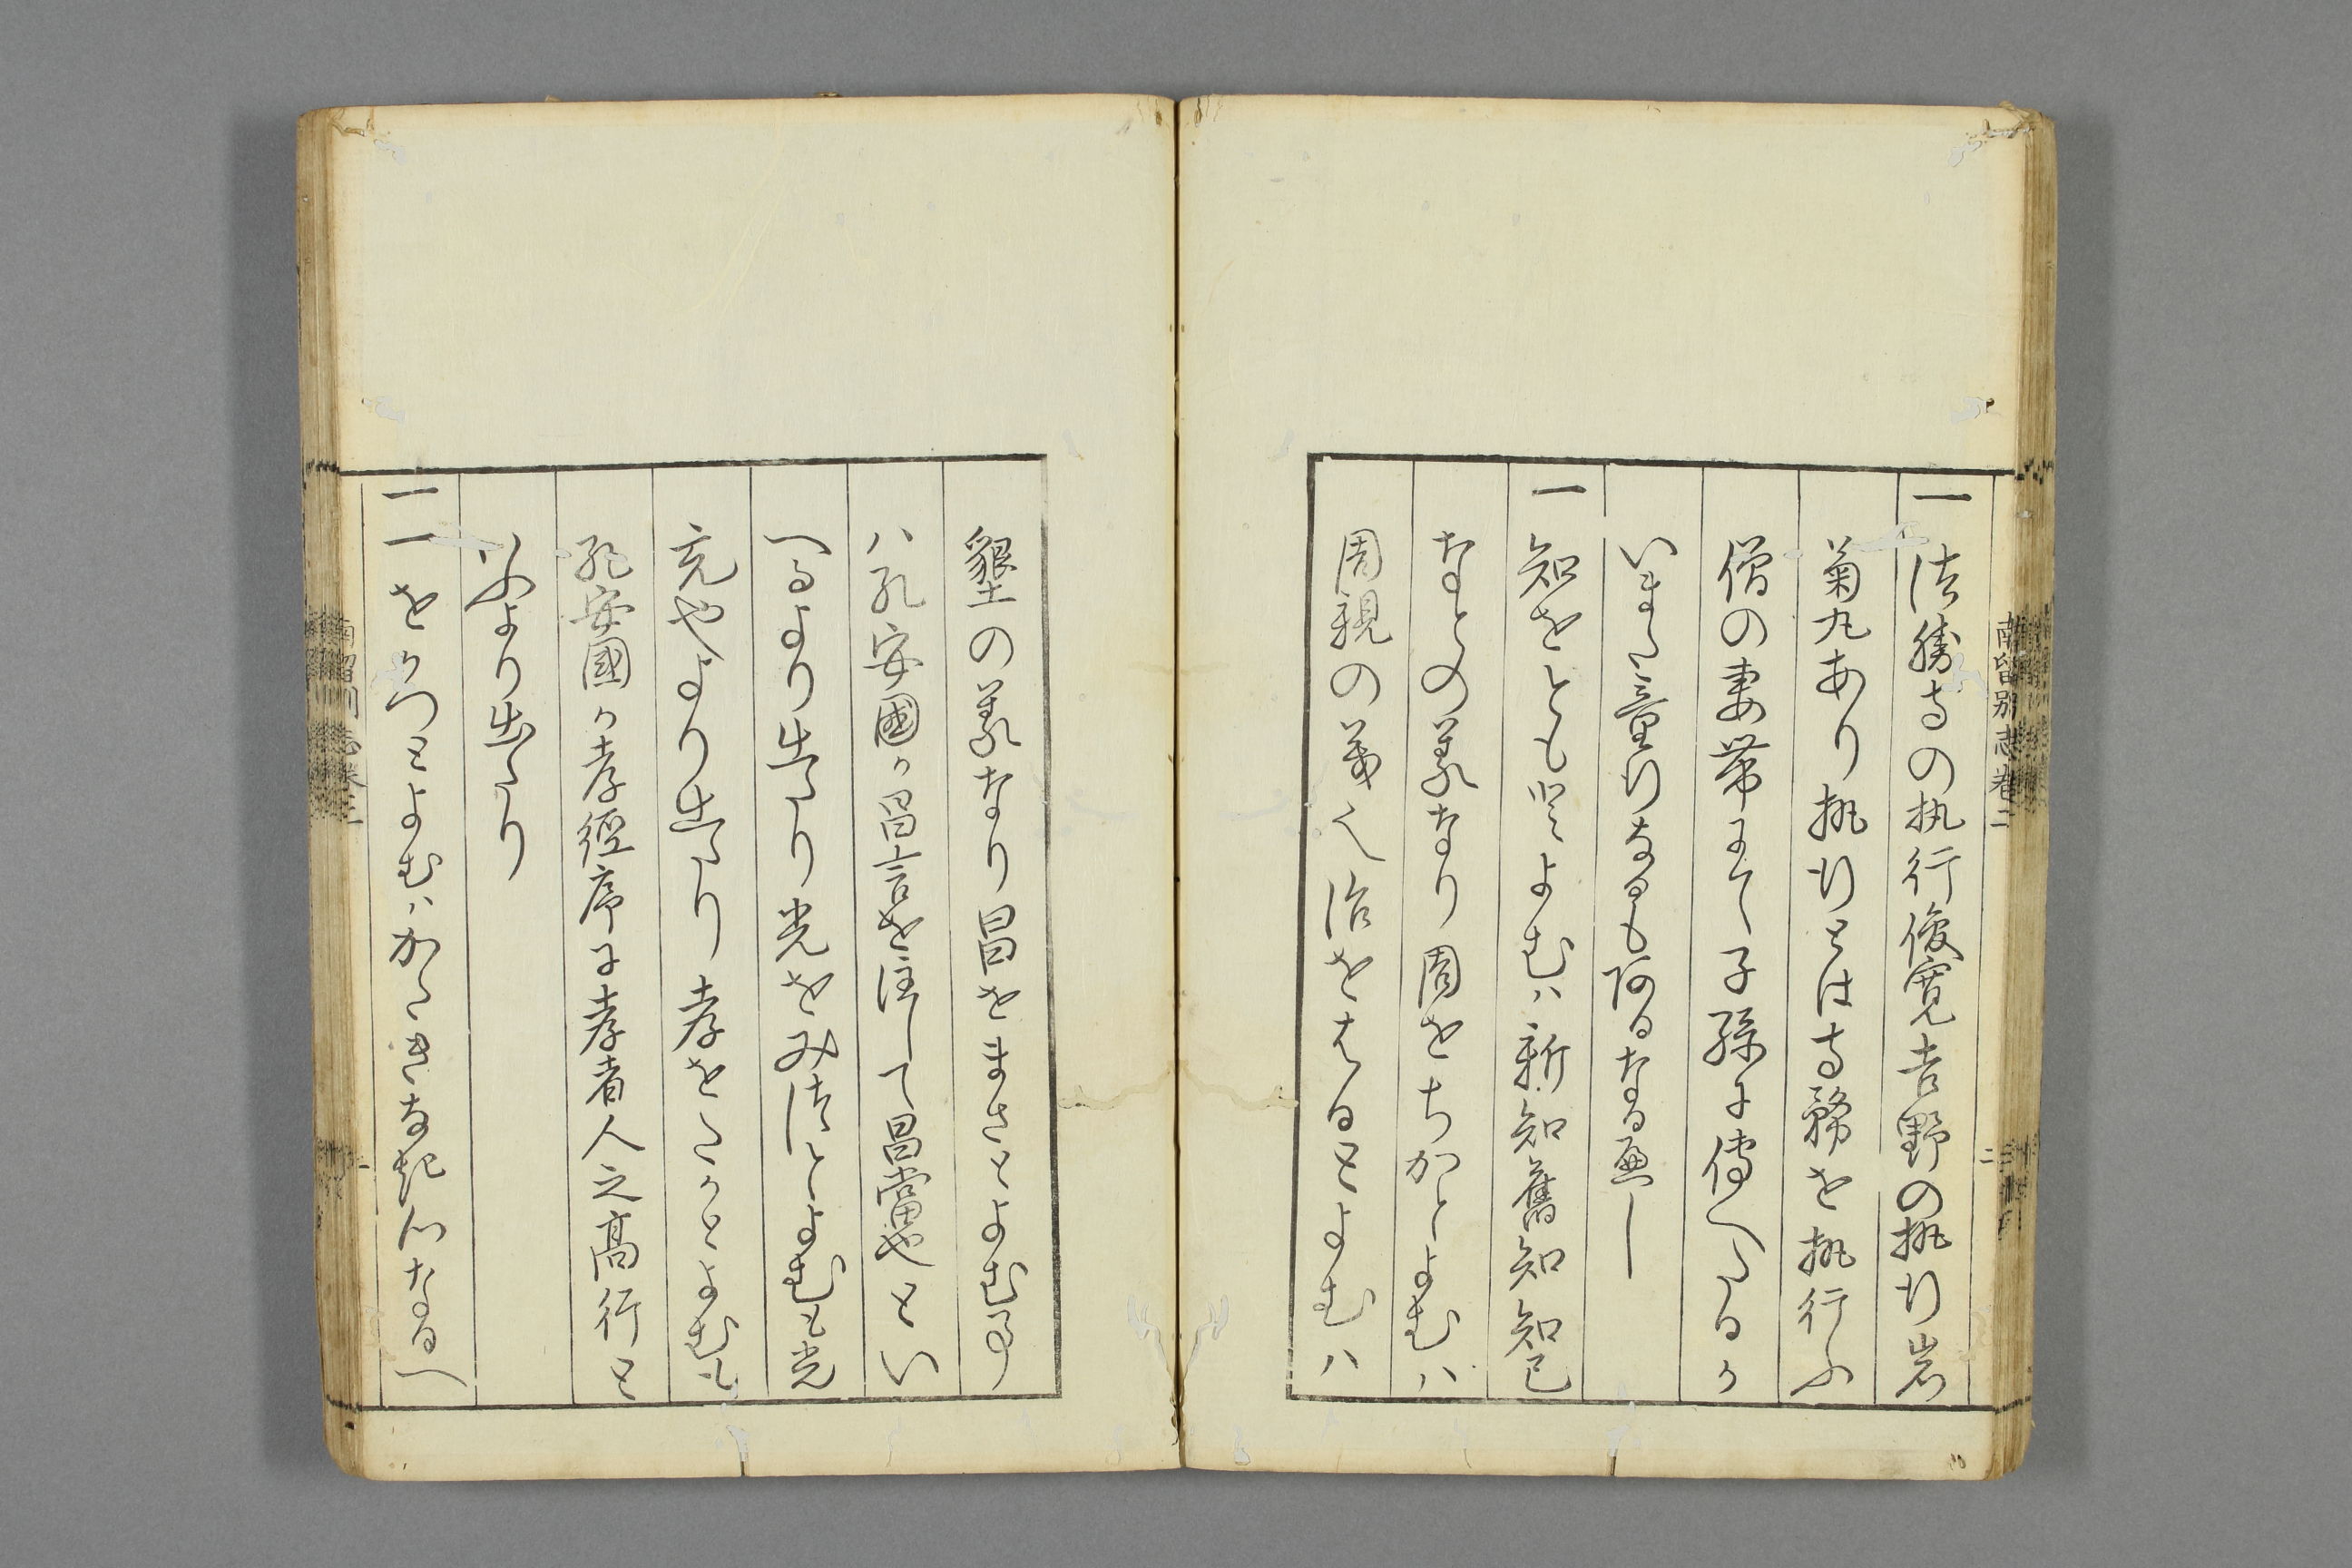 南留別志巻二　二
一法勝寺の執行俊寛吉野の執行岩
菊丸あり執行とは寺務を執行ふ
僧の妻帯にて子孫に傳へたるか
いまた童形なるも阿るなる遍し
一知をとも登よむハ新知舊知知己
なとの義なり周をちかとよむハ
周親の義也治をはるとよむハ
墾土の義なり昌をまさとよむ事
ハ孔安國か昌言を注して昌當也とい
へるより出たり光をみ津とよむも光
充也より出たり孝をたかとよむも
孔安國か孝經序に孝者人之高行と
いふより出たり
一一をかつとよむハかたきなき心なるへ